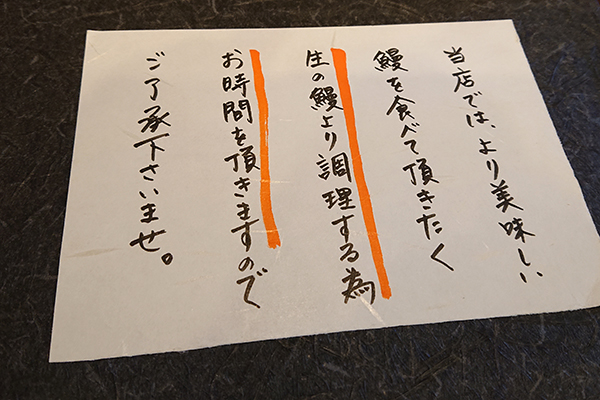 当店では、より美味しい
鰻を食べて頂きたく
生の鰻より調理する為
お時間を頂きますので
ご了承下さいませ。